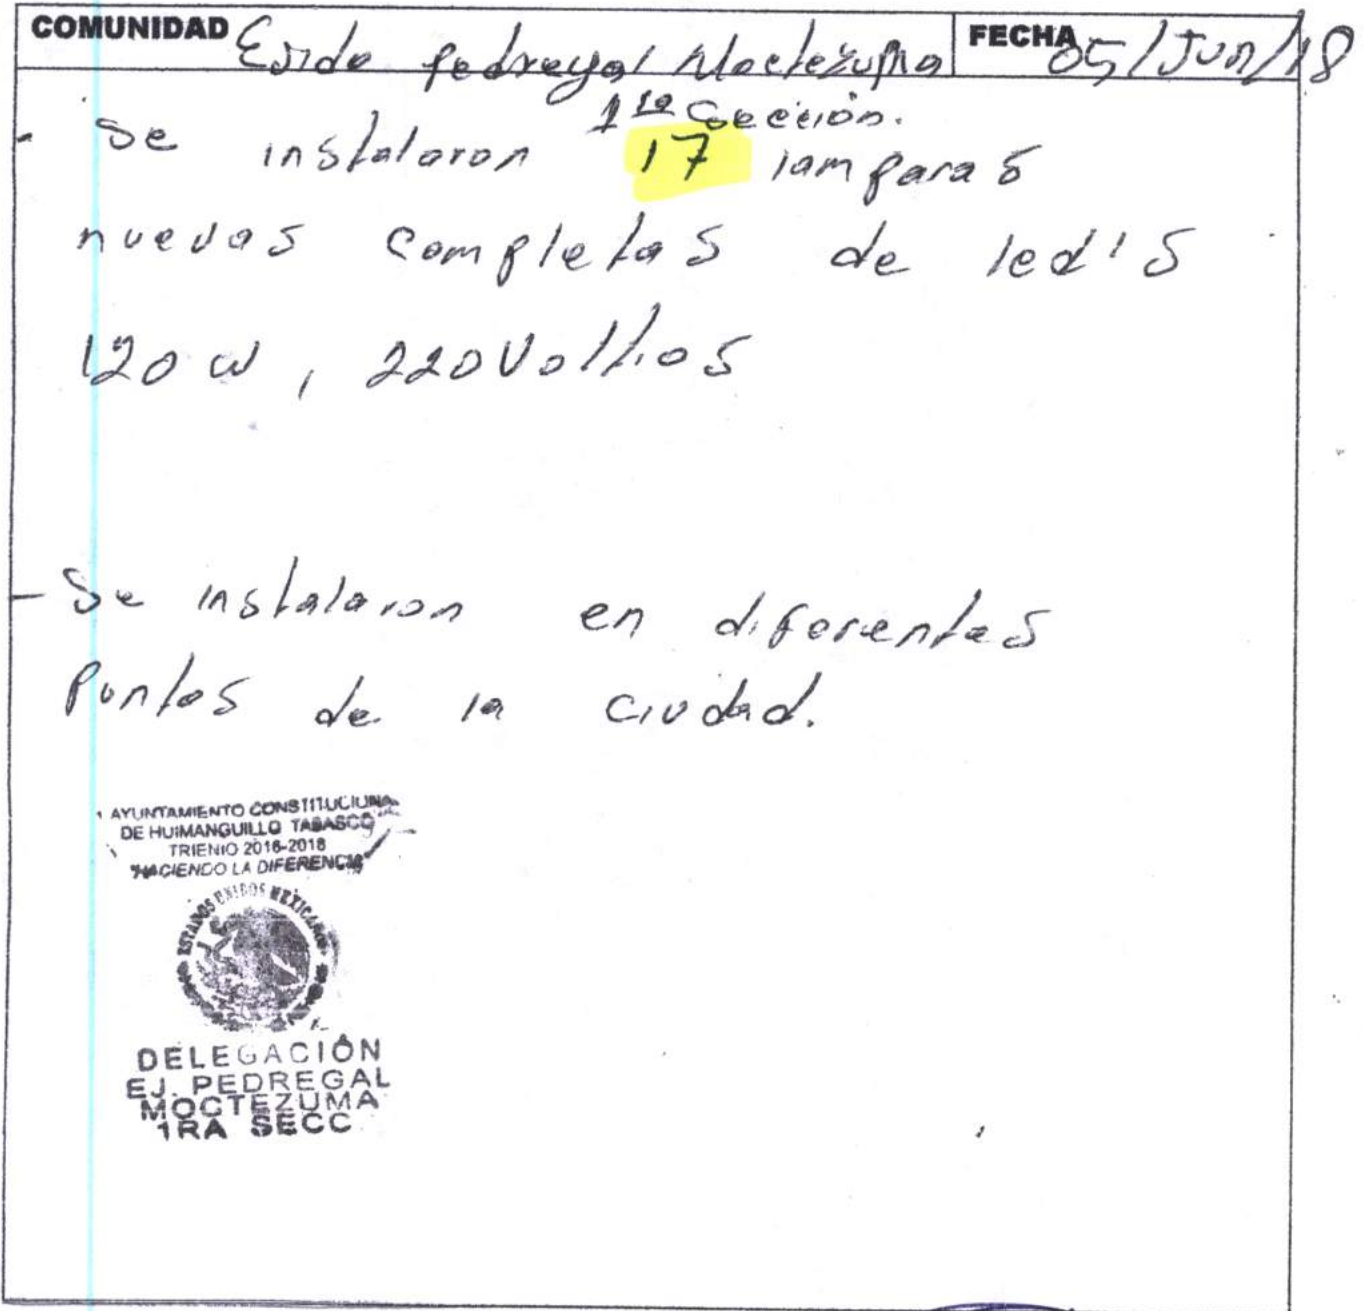 COMUNIDAD Ejido pedregal Moctezuma FECHA 05/Jun/18
1ra Sección.
- Se instalaron 17 lamparas
nuevas completas de led's
120 w, 220 Voltios
- Se instalaron en diferentes
Puntos de la ciudad.
AYUNTAMIENTO CONSTITUCIONA
DE HUIMANGUILLO TABASCO
TRIENIO 2016-2018
"HACIENDO LA DIFERENCIA"
ESTADOS UNIDOS MEXICANOS
DELEGACIÓN
EJ. PEDREGAL
MOCTEZUMA
1RA SECC